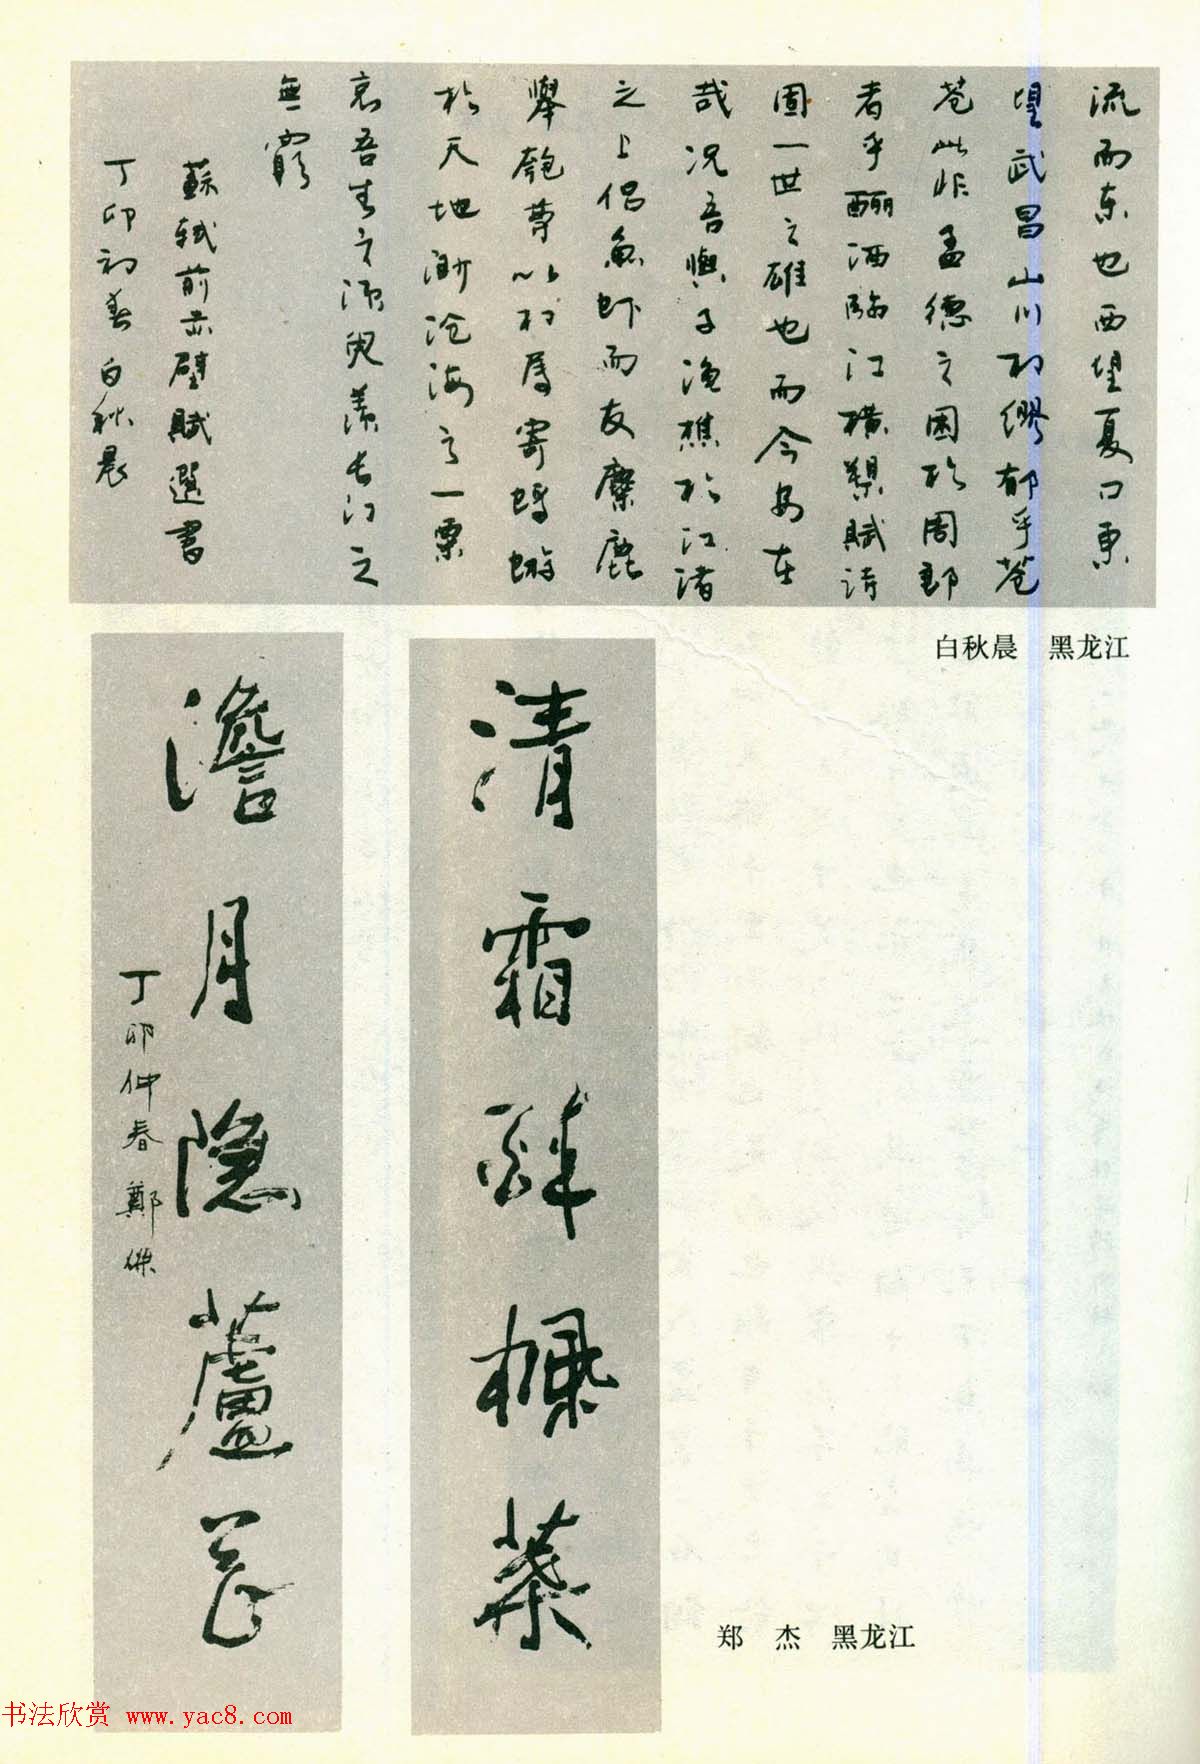 流而东也西望夏口东
望武昌山川相缪郁乎苍
苍此非孟德之困於周郎
者乎酾酒临江横槊赋诗
固一世之雄也而今安在
哉况吾與子渔樵於江渚
之上侣鱼虾而友麋鹿
舉匏尊以相属寄蜉蝣
於天地渺沧海之一粟
哀吾生之须臾羡长江之
無窮
蘇轼前赤壁赋選書
丁卯初春白秋晨
白秋晨 黑龙江
清霜醉槲葉
澹月隐蘆花
丁卯仲春鄭傑
郑 杰 黑龙江
书法欣赏 www.yac8.com